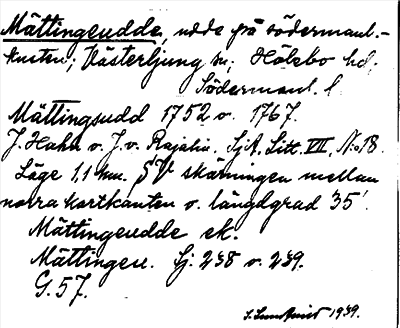 Mättingeudde, udde på södermanl.-
kusten; Västerljung sn; Hölebo hd;
Södermanl. l.
Mättingsudd 1752 o. 1767.
J. Hahn o. J. v. Rajalin. SjA. Litt. VII, No 18.
Läge 1,1 km. SV skärningen mellan
norra kartkanten o. längdgrad 35'.
Mättingeudde ek.
Mättingen. Gj. 238 o. 239.
G. 57.
1939.